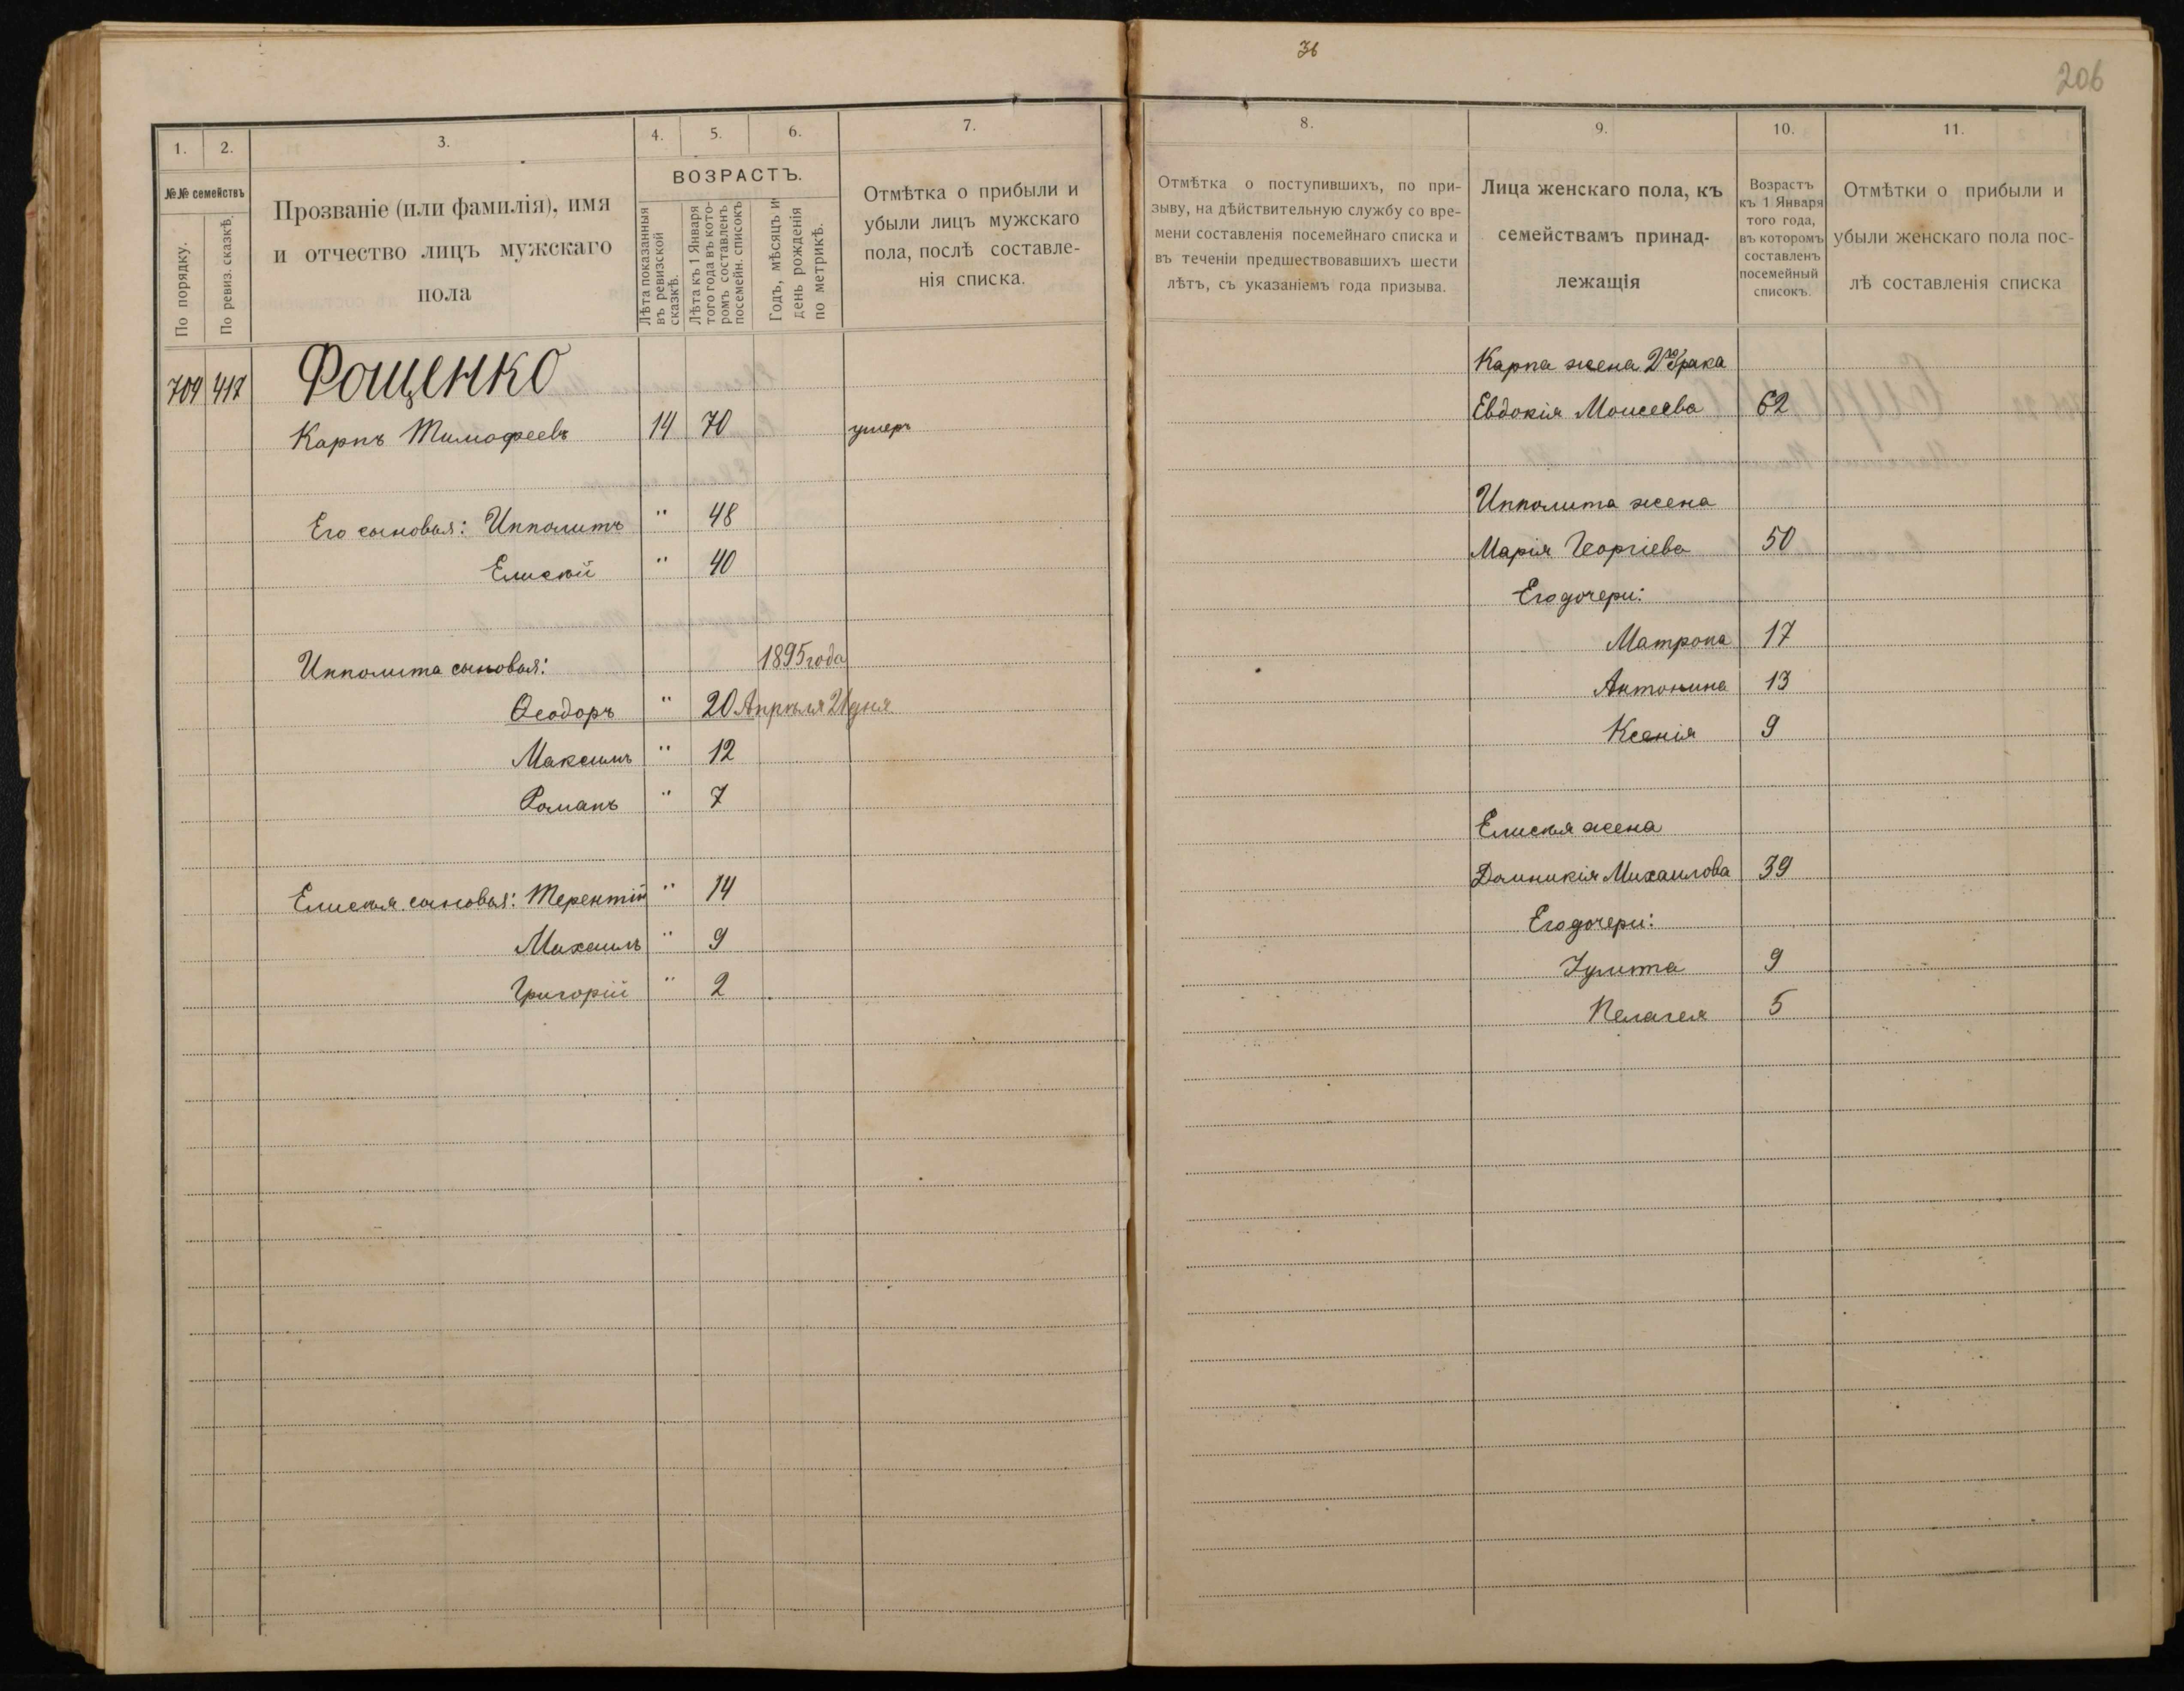 36
206
1.
2.
3.
4.
5.
6.
7.
№№ семействъ
По порядку.
По ревиз. сказкѣ.
Прозваніе (или фамилія), имя
и отчество лицъ мужскаго
пола
ВОЗРАСТЪ.
Лѣта показанныя
въ ревизской
сказкѣ.
Лѣта къ 1 Января
того года въ кото-
ромъ составленъ
посемейн. списокъ
Годъ, мѣсяцъ и
день рожденія
по метрикѣ.
Отмѣтка о прибыли и
убыли лицъ мужскаго
пола, послѣ составле-
нія списка.
709 417 Фощенко
Карпъ Тимофеевъ 14 70 умеръ
Его сыновья: Ипполитъ " 48
Елисѣй " 40
Ипполита сыновья: 1895 года
Ѳеодоръ " 20 Апрѣля 21 дня
Максимъ " 12
Романъ " 7
Елисѣя сыновья: Терентій " 14
Михаилъ " 9
Григорій " 2
8.
9.
10.
11.
Отмѣтка о поступившихъ, по при-
зыву, на дѣйствительную службу со вре-
мени составленія посемейнаго списка и
въ теченіи предшествовавшихъ шести
лѣтъ, съ указаніемъ года призыва.
Лица женскаго пола, къ
семействамъ принад-
лежащія
Возрастъ
къ 1 Января
того года,
въ которомъ
составленъ
посемейный
списокъ.
Отмѣтки о прибыли и
убыли женскаго пола пос-
лѣ составленія списка
Карпа жена 2го брака
Евдокія Моисеева 62
Ипполита жена
Марія Георгіева 50
Его дочери:
Матрона 17
Антонина 13
Ксенія 9
Елисѣя жена
Домникія Михаилова 39
Его дочери:
Іулита 9
Пелагея 5